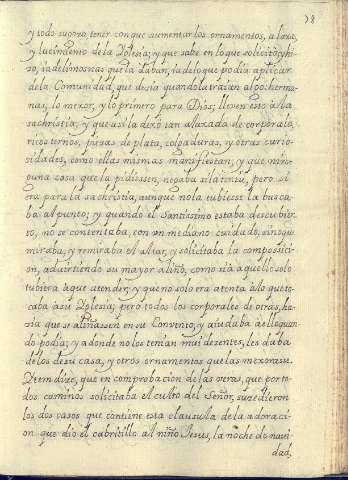 38
y todo su gozo, tener con que aumentar los ornamentos, alaxas,
y lucimiento de la Yglesia; y que sabe en lo que solicitò, y hi-
zo, ia de limosnas que la daban, ia de lo que podia aplicar
de la Comunidad, que decia quando la traían algo: herma-
nas, lo mexor, y lo primero para Dios; lleven esto à la
sachristia; y que asi la dexò tan alaxada de corporales,
ricos ternos, piesas de plata, colgaduras, y otras curio-
sidades, como ellas mismas manifiestan; y que nin-
guna cosa que la pidiessen, negaba si la tenia, pero si
era para la sachristia, aunque no la tubiesse la busca-
ba al punto; y quando el Santissimo estaba descubier-
to, no se contentaba, con un mediano cuidado, sino q̃
miraba, y remiraba el Altar, y solicitaba la composici-
on, advirtiendo su mayor aliño, como si à aquello solo
tubiera à que atender; y que no solo era atenta à lo que to-
caba à su Yglesia, pero todos los corporales de otras, ha-
zia que se aliñassen en su Convento, y aiudaba à ello quan-
do podia; y adonde no los tenian mui dezentes, les daba
de los de su casa, y otros ornamentos que las mexorasse.
Ytem dize, que en comprobacion de las veras, que por to-
dos caminos solicitaba el culto del Señor, sucedieron
los dos casos que contiene esta clausula de la adoraci-
on que diò el cabritillo al niño Jesus, la noche de navi-
dad,